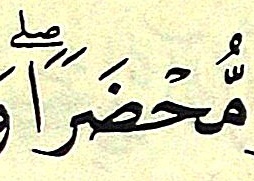 مُّحْضَرًاۖ